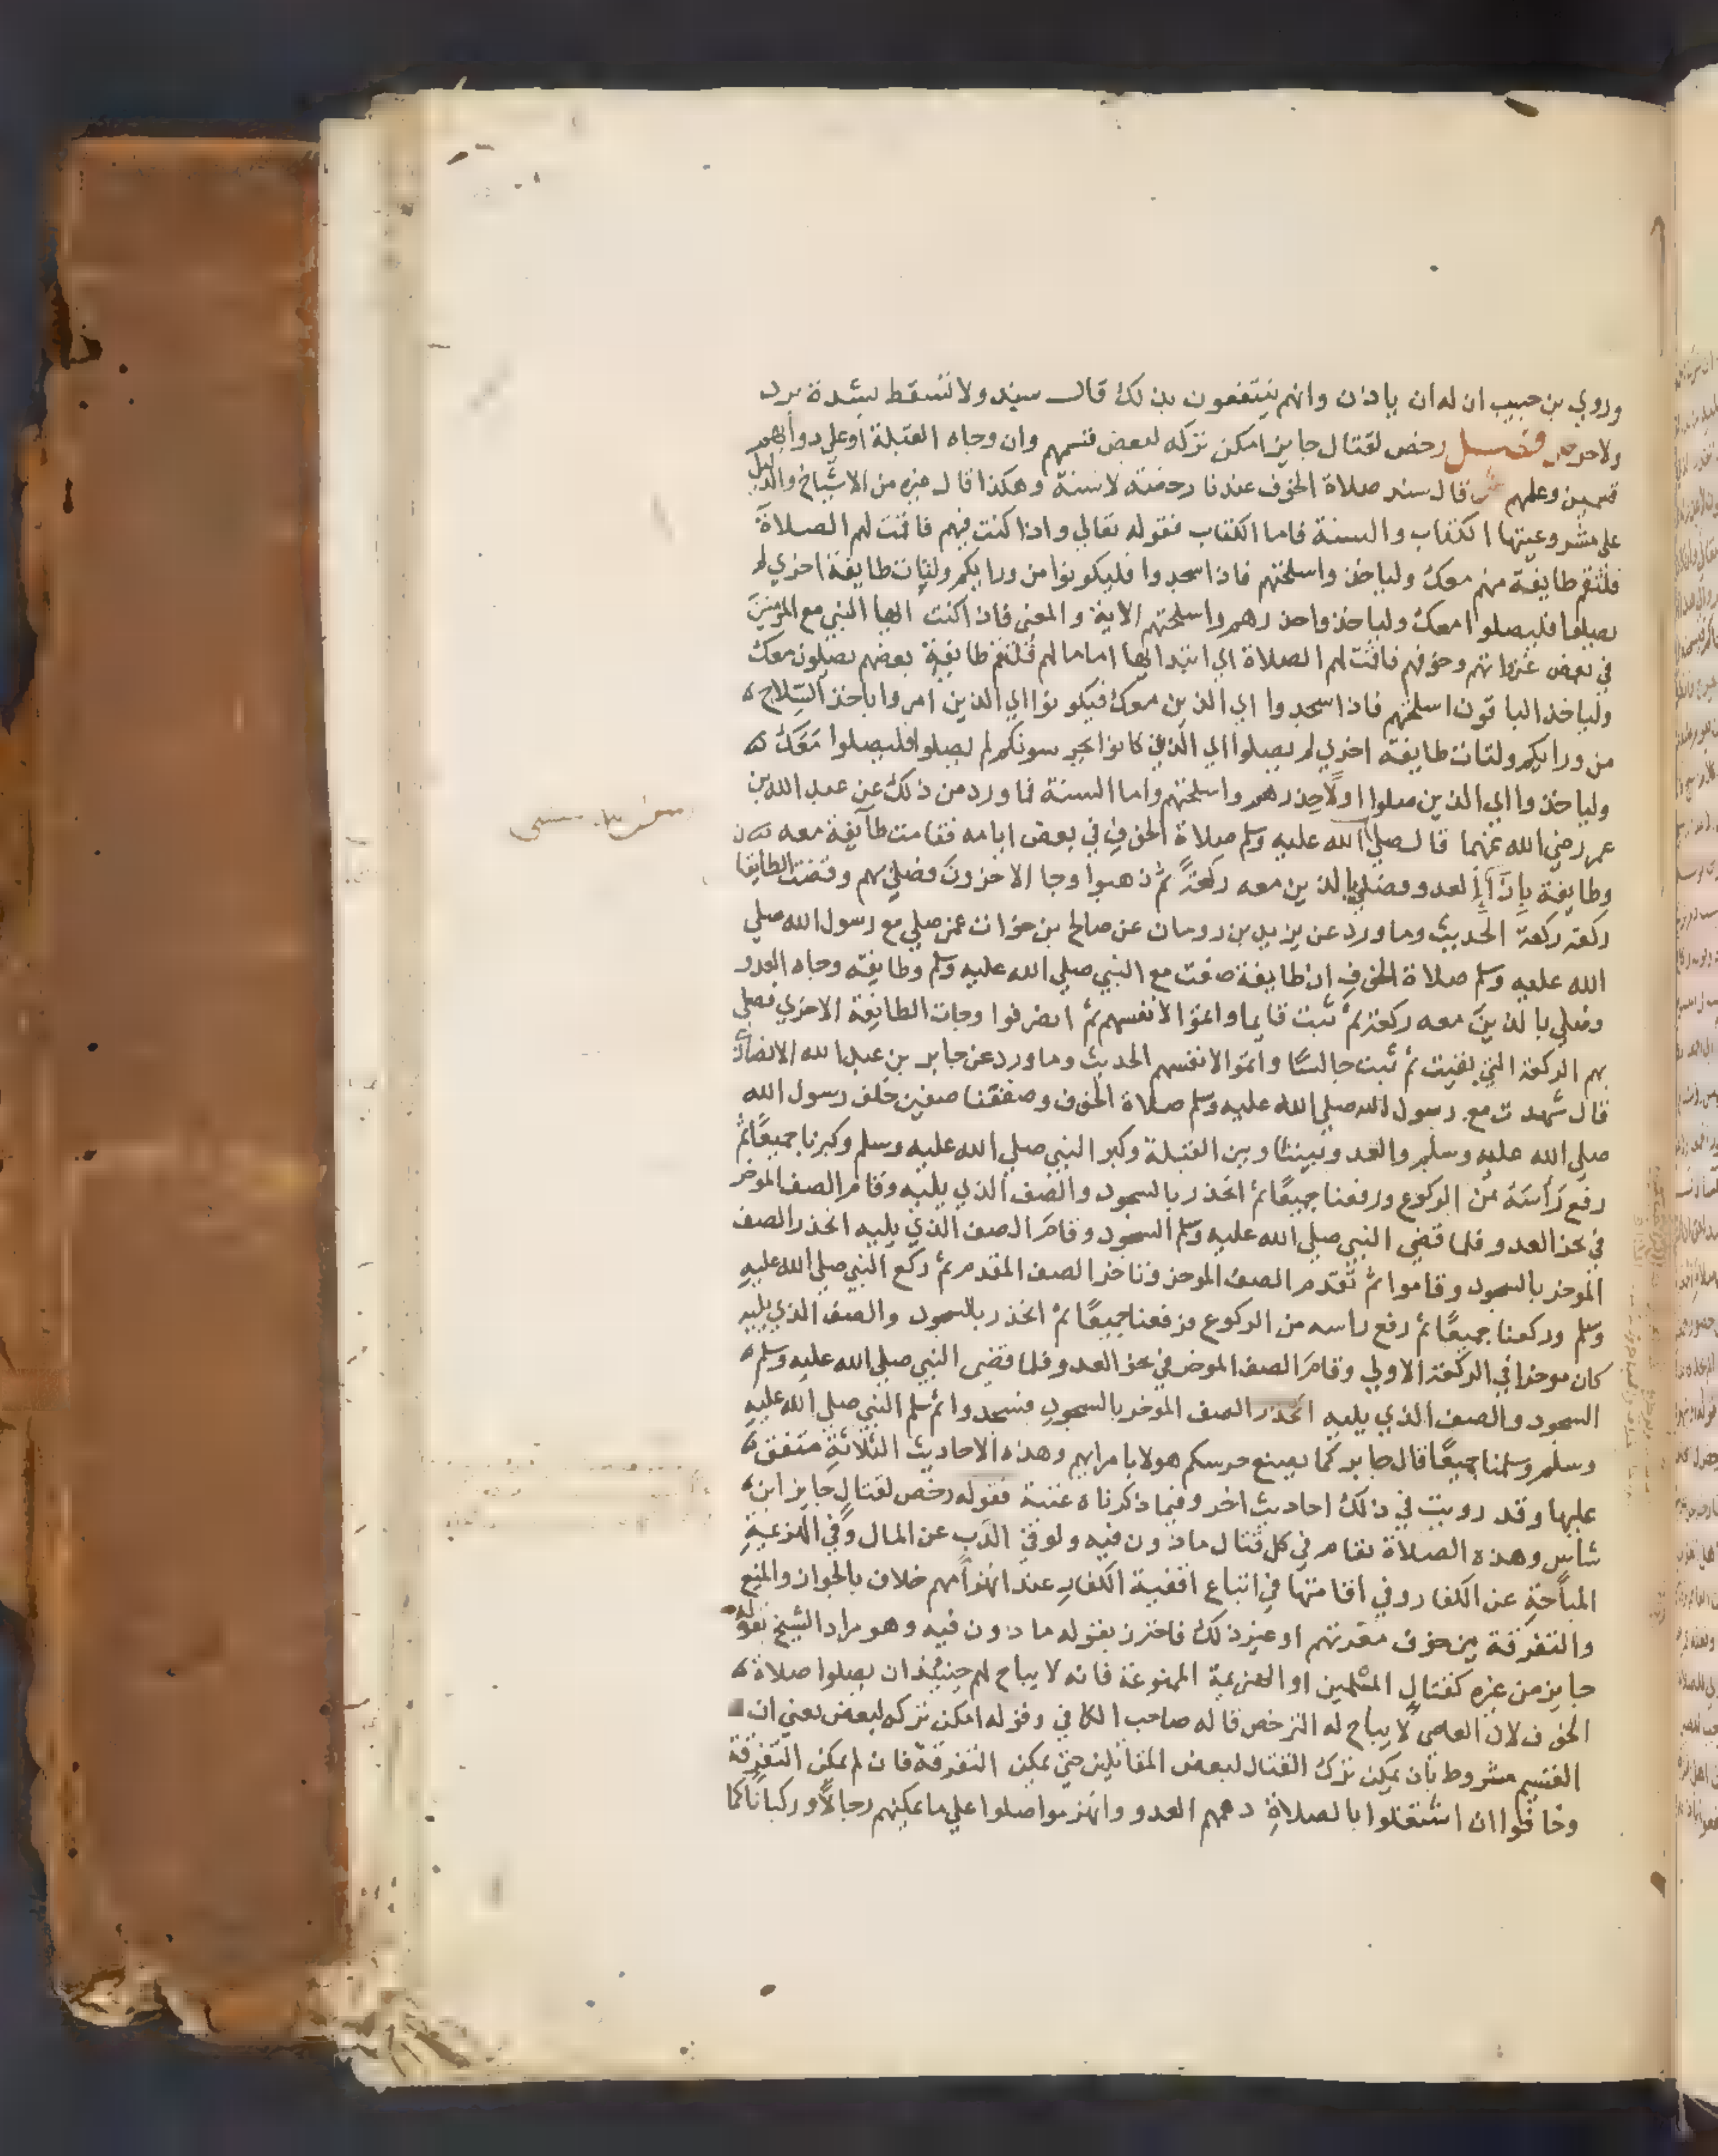 وروي بن حبيب ان له ان ياذن وانهم ينتفعون بذلك قال سند ولا تسقط بشدة برد
ولا حر فصل رخص لقتال جايز امكن تركه لبعض قسمهم وان وجاه القبلة او على دوابهم
قسمين وعلمهم ش قال سند صلاة الخوف عندنا رخصة لا سنة وهكذا قال غيره من الاشياخ والدليل
على مشروعيتها الكتاب والسنة فاما الكتاب فقوله تعالي واذا كنت فيهم فاقمت لهم الصلاة
فلتقم طايفة منهم معك ولياخذوا اسلحتهم فاذا سجدوا فليكونوا من ورايكم ولتات طايفة اخري لم
يصلوا فليصلوا معك ولياخذوا حذرهم واسلحتهم الاية والمعني فاذا كنت ايها النبي مع المومنين
في بعض غزواتهم وخوفهم فاقمت لهم الصلاة اي ابتدايها اماما لهم فلتقم طايفة بعضهم يصلون معك
ولياخذ الباقون اسلحتهم فاذا سجدوا اي الذين معك فيكونوا اي الذين امروا باخذ السلاح
من ورايكم ولتات طايفة اخري لم يصلوا اي الذين كانوا يحرسونكم لم يصلوا فليصلوا معك
ولياخذوا اي الذين صلوا اولا حذرهم واسلحتهم واما السنة فما ورد من ذلك عن عبد الله بن
عمر رضي الله عنهما قال صلي الله عليه وسلم صلاة الخوف في بعض ايامه فقامت طايفة معه
وطايفة بازا العدو وصلي بالذين معه ركعة ثم ذهبوا وجا الاخرون فصلي بهم وقضت الطايفتا
ركعة ركعة الحديث وما ورد عن يزيد بن رومان عن صالح بن خوات عمن صلي مع رسول الله صلي
الله عليه وسلم صلاة الخوف ان طايفة صفت مع النبي صلي الله عليه وسلم وطايفة وجاه العدو
وصلي بالذين معه ركعة ثم ثبت قايما واتموا لانفسهم ثم انصرفوا وجات الطايفة الاخري فصلي
بهم الركعة التي بقيت ثم ثبت جالسا واتموا لانفسهم الحديث وما ورد عن جابر بن عبد الله الانصاري
قال شهدت مع رسول الله صلي الله عليه وسلم صلاة الخوف وصففنا صفين خلف رسول الله
صلي الله عليه وسلم والعدو بيننا وبين القبلة وكبر النبي صلي الله عليه وسلم وكبرنا جميعا ثم
رفع راسه من الركوع ورفعنا جميعا ثم انحدر بالسجود والصف الذي يليه وقام الصف الموخر
في نحر العدو فلما قضي النبي صلي الله عليه وسلم السجود وقام الصف الذي يليه انحدر الصف
الموخر بالسجود وقاموا ثم تقدم الصف الموخر وتاخر الصف المقدم ثم ركع النبي صلي الله عليه
وسلم وركعنا جميعا ثم رفع راسه من الركوع فرفعنا جميعا ثم انحدر بالسجود والصف الذي يليه
كان موخرا في الركعة الاولي وقام الصف الموخر في نحر العدو فلما قضي النبي صلي الله عليه وسلم
السجود والصف الذي يليه انحدر الصف الموخر بالسجود فسجدوا ثم سلم النبي صلي الله عليه
وسلم وسلمنا جميعا قال جابر كما يصنع حرسكم هولا بامرايهم وهذه الاحاديث الثلاثة متفق
عليها وقد رويت في ذلك احاديث اخر وفيما ذكرناه غنية فقوله رخص لقتال جايز ابن
شاس وهذه الصلاة تقام في كل قتال ماذون فيه ولو في الذب عن المال وفي الهزيمة
المباحة عن الكفار وفي اقامتها في اتباع اقفية الكفار عند انهزامهم خلاف بالجواز والمنع
والتفرقة بين خوف معرتهم او غير ذلك فاحترز بقوله ماذون فيه وهو مراد الشيخ بقوله
جايز من غيره كقتال المسلمين او الهزيمة الممنوعة فانه لا يباح لهم حينيذ ان يصلوا صلاة
الخوف لان العاصي لا يباح له الترخص قاله صاحب الكافي وقوله امكن تركه لبعض يعني ان
القسم مشروط بان يمكن ترك القتال لبعض المقاتلين حتي يمكن التفرقة فان لم يمكن التفرقة
وخافوا ان اشتغلوا بالصلاة دهمهم العدو وانهزموا صلوا علي ما يمكنهم رجالا وركبانا كما